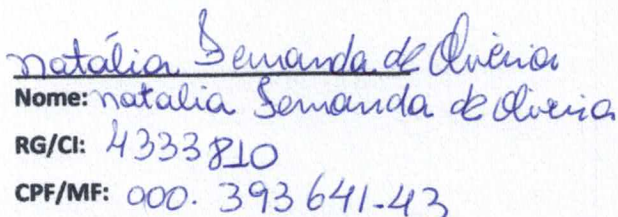 natália Fernanda de Oliveira
Nome: natalia Fernanda de Oliveira
RG/CI: 4333810
CPF/MF: 000. 393 641-43